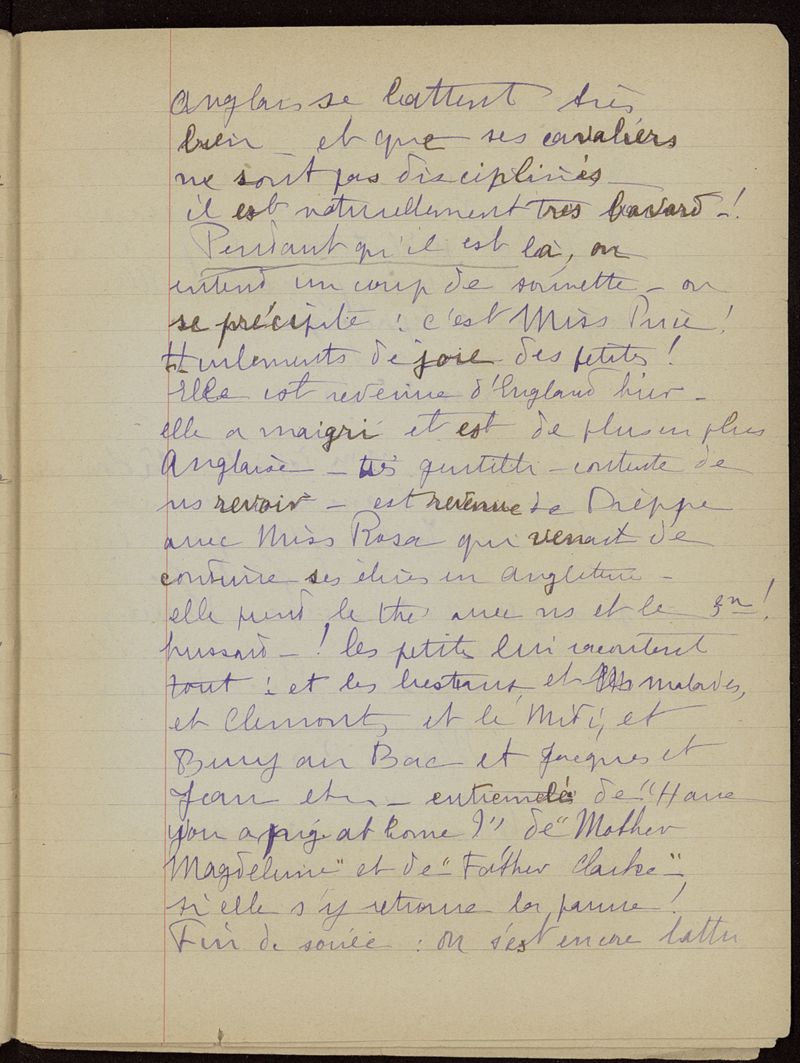 Anglais se battent très
bien _ et que ses cavaliers
ne sont pas disciplinés _
il est naturellement très bavard _!
Pendant qu'il est là, on
entend un coup de sonnette _ on
se précipite : c'est Miss Price !
Hurlements de joie des petites !
Elle est revenue d'England hier _
elle a maigri et est de plus en plus
Anglaise _ très gentille _ contente de
ns revoir _ est revenue de Dieppe
avec Miss Rosa qui venait de
conduire ses élèves en Angleterre _
elle prend le thé avec ns et le 3e !
hussard _ ! les petites lui racontent
tout : et les bestiaux, et les malades,
et Clémont, et le Midi, et
Berry au Bac et Jacques et
Jean etc _ entremêlé de "Have
you a pig at home ?" de "Mother
Magdeleine" et de "Father Clarke" _
si elle s'y retrouve la pauvre !
Fin de soirée : on s'est encore battu